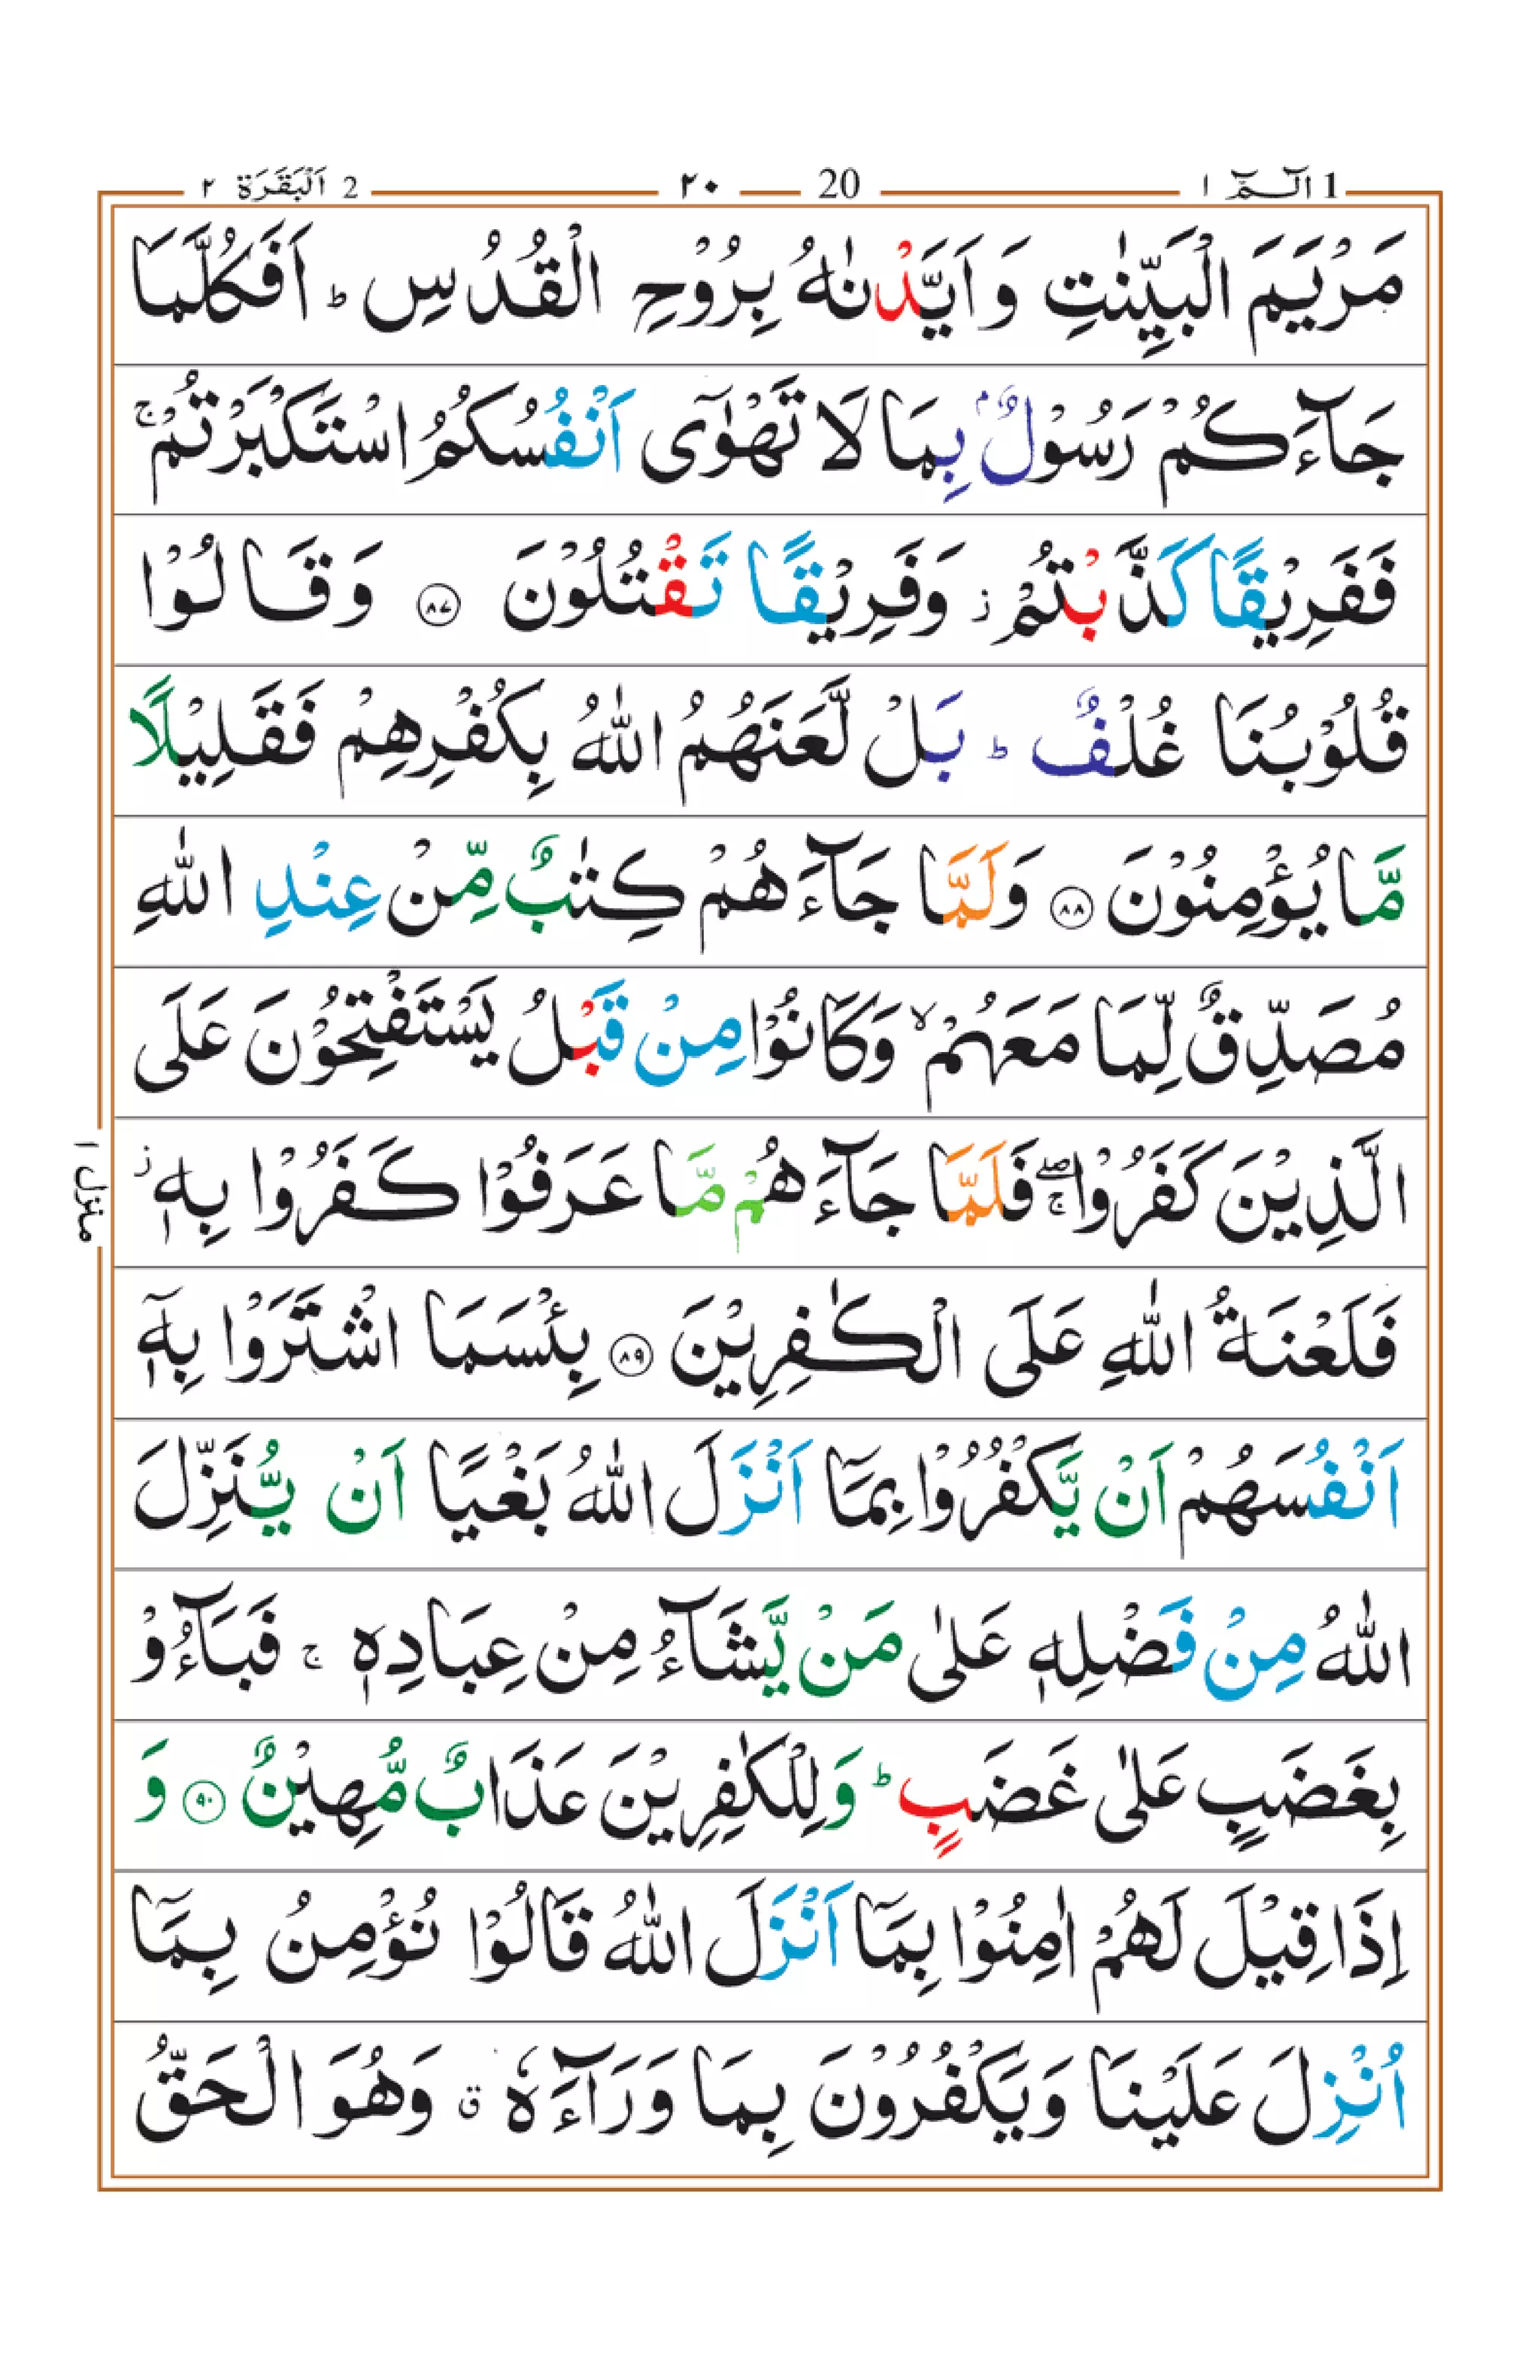 1 الٓـمّٓ ١ 20 ٢٠ 2 اَلْبَقَرَة ٢
مَرْيَمَ الْبَيِّنٰتِ وَ اَيَّدْنٰهُ بِرُوْحِ الْقُدُسِ ؕ اَفَكُلَّمَا
جَآءَكُمْ رَسُوْلٌۢ بِمَا لَا تَهْوٰٓى اَنْفُسُكُمُ اسْتَكْبَرْتُمْ ۚ
فَفَرِيْقًا كَذَّبْتُمْ ؗ وَفَرِيْقًا تَقْتُلُوْنَ ۝٨٧ وَقَالُوْا
قُلُوْبُنَا غُلْفٌ ؕ بَلْ لَّعَنَهُمُ اللّٰهُ بِكُفْرِهِمْ فَقَلِيْلًا
مَّا يُؤْمِنُوْنَ ۝٨٨ وَلَمَّا جَآءَهُمْ كِتٰبٌ مِّنْ عِنْدِ اللّٰهِ
مُصَدِّقٌ لِّمَا مَعَهُمْ ۙ وَكَانُوْا مِنْ قَبْلُ يَسْتَفْتِحُوْنَ عَلَى
الَّذِيْنَ كَفَرُوْا ۖۚ فَلَمَّا جَآءَهُمْ مَّا عَرَفُوْا كَفَرُوْا بِهٖ ؗ
فَلَعْنَةُ اللّٰهِ عَلَى الْكٰفِرِيْنَ ۝٨٩ بِئْسَمَا اشْتَرَوْا بِهٖٓ
اَنْفُسَهُمْ اَنْ يَّكْفُرُوْا بِمَآ اَنْزَلَ اللّٰهُ بَغْيًا اَنْ يُّنَزِّلَ
اللّٰهُ مِنْ فَضْلِهٖ عَلٰى مَنْ يَّشَآءُ مِنْ عِبَادِهٖ ۚ فَبَآءُوْ
بِغَضَبٍ عَلٰى غَضَبٍ ؕ وَلِلْكٰفِرِيْنَ عَذَابٌ مُّهِيْنٌ ۝٩٠ وَ
اِذَا قِيْلَ لَهُمْ اٰمِنُوْا بِمَآ اَنْزَلَ اللّٰهُ قَالُوْا نُؤْمِنُ بِمَآ
اُنْزِلَ عَلَيْنَا وَيَكْفُرُوْنَ بِمَا وَرَآءَهٗ ۗ وَهُوَ الْحَقُّ
منزل ١